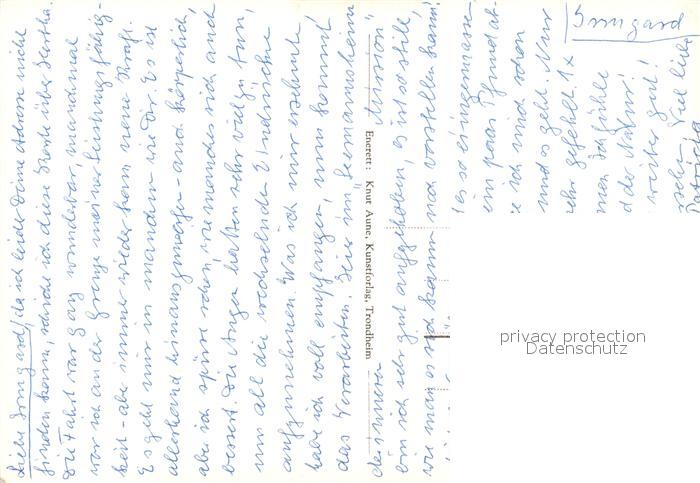 Liebe Irmgard, da ich leider Deine Adresse nicht
finden kann, schicke ich diese Karte über Hertha.
Die Fahrt war ganz wunderbar, manchmal
war ich an der Grenze meiner Leistungsfähig-
keit - aber immer wieder kam neue Kraft.
Es geht mir in manchem wie Dir. Es ist
allerhand hinauszuweisen - auch körperlich,
aber ich spüre schon, wie manches sich auch
bessert. Die Augen hatten sehr viel zu tun,
um all die wechselnden Eindrücke
aufzunehmen. Was ich mir ersehnte
habe ich voll empfangen, nun kommt
das Verarbeiten. Hier im "Seemannsheim
der inneren Mission"
bin ich sehr gut aufgehoben, es ist so still,
wie man es sich kaum noch vorstellen kann!
es so einigermassen
ein paar Pfund ab-
ich mich schon
und es geht. Nur
sehr gefehlt. 1x
men. Ich fühle
d der Natur!
weiter gut!
Viel liebe
Irmgard
Enerett: Knut Aune, Kunstforlag, Trondheim
privacy protection
Datenschutz